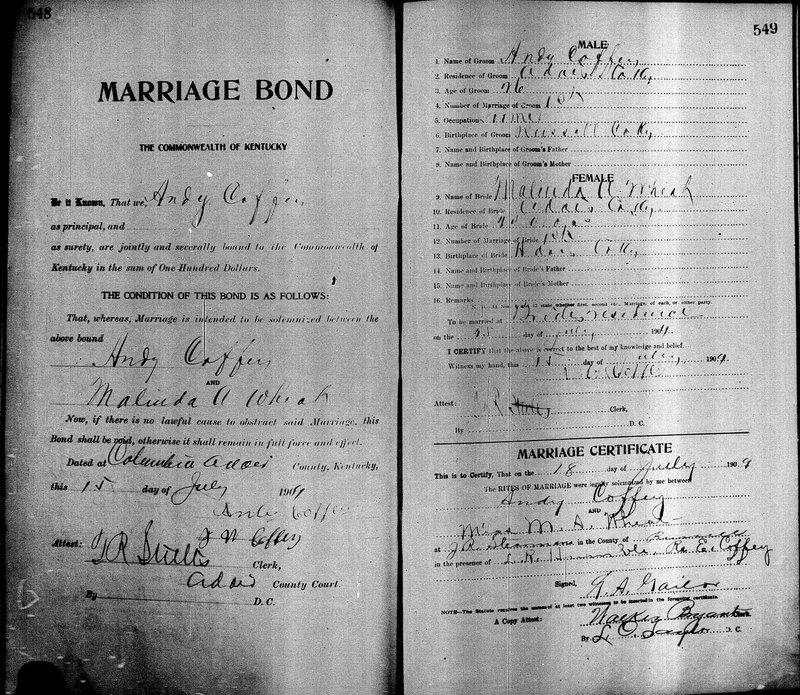 548
MARRIAGE BOND
THE COMMONWEALTH OF KENTUCKY
Be it Known, That we, Andy Coffey
as principal, and
as surety, are jointly and severally bound to the Commonwealth of
Kentucky in the sum of One Hundred Dollars.
THE CONDITION OF THIS BOND IS AS FOLLOWS:
That, whereas, Marriage is intended to be solemnized between the
above bound
Andy Coffey
AND
Malinda A Wheat
Now, if there is no lawful cause to obstruct said Marriage, this
Bond shall be void, otherwise it shall remain in full force and effect.
Dated at Columbia Adair County, Kentucky,
this 15 day of July 190
Coffey
J N Coffey
Attest: Clerk,
Adair County Court.
By D. C.
549
MALE
1. Name of Groom Andy Coffey
2. Residence of Groom Adair Co Ky
3. Age of Groom 26
4. Number of Marriage of Groom 1st
5. Occupation
6. Birthplace of Groom Russell Co Ky
7. Name and Birthplace of Groom's Father
8. Name and Birthplace of Groom's Mother
FEMALE
9. Name of Bride Malinda A. Wheat
10. Residence of Bride Adair Co Ky
11. Age of Bride
12. Number of Marriage of Bride 1st
13. Birthplace of Bride Adair Co Ky
14. Name and Birthplace of Bride's Father
15. Name and Birthplace of Bride's Mother
16. Remarks
state whether first, second etc., Marriage, of each, or either party.
To be married at Brides residence
on the day of July 190
I CERTIFY that the above is correct to the best of my knowledge and belief.
Witness my hand, this 15 day of July 190
Coffey
Attest: Clerk,
By D. C.
MARRIAGE CERTIFICATE
This is to Certify, That on the 18 day of July 190
The RITES OF MARRIAGE were legally solemnized by me between
Andy Coffey
AND
Miss M. A. Wheat
at J R in the County of
in the presence of L. R. Coffey
Signed,
NOTE—The Statute requires the names of at least two witnesses to be inserted in the foregoing certificate.
A Copy Attest: Walker Bryant Clerk.
By L C Taylor D. C.